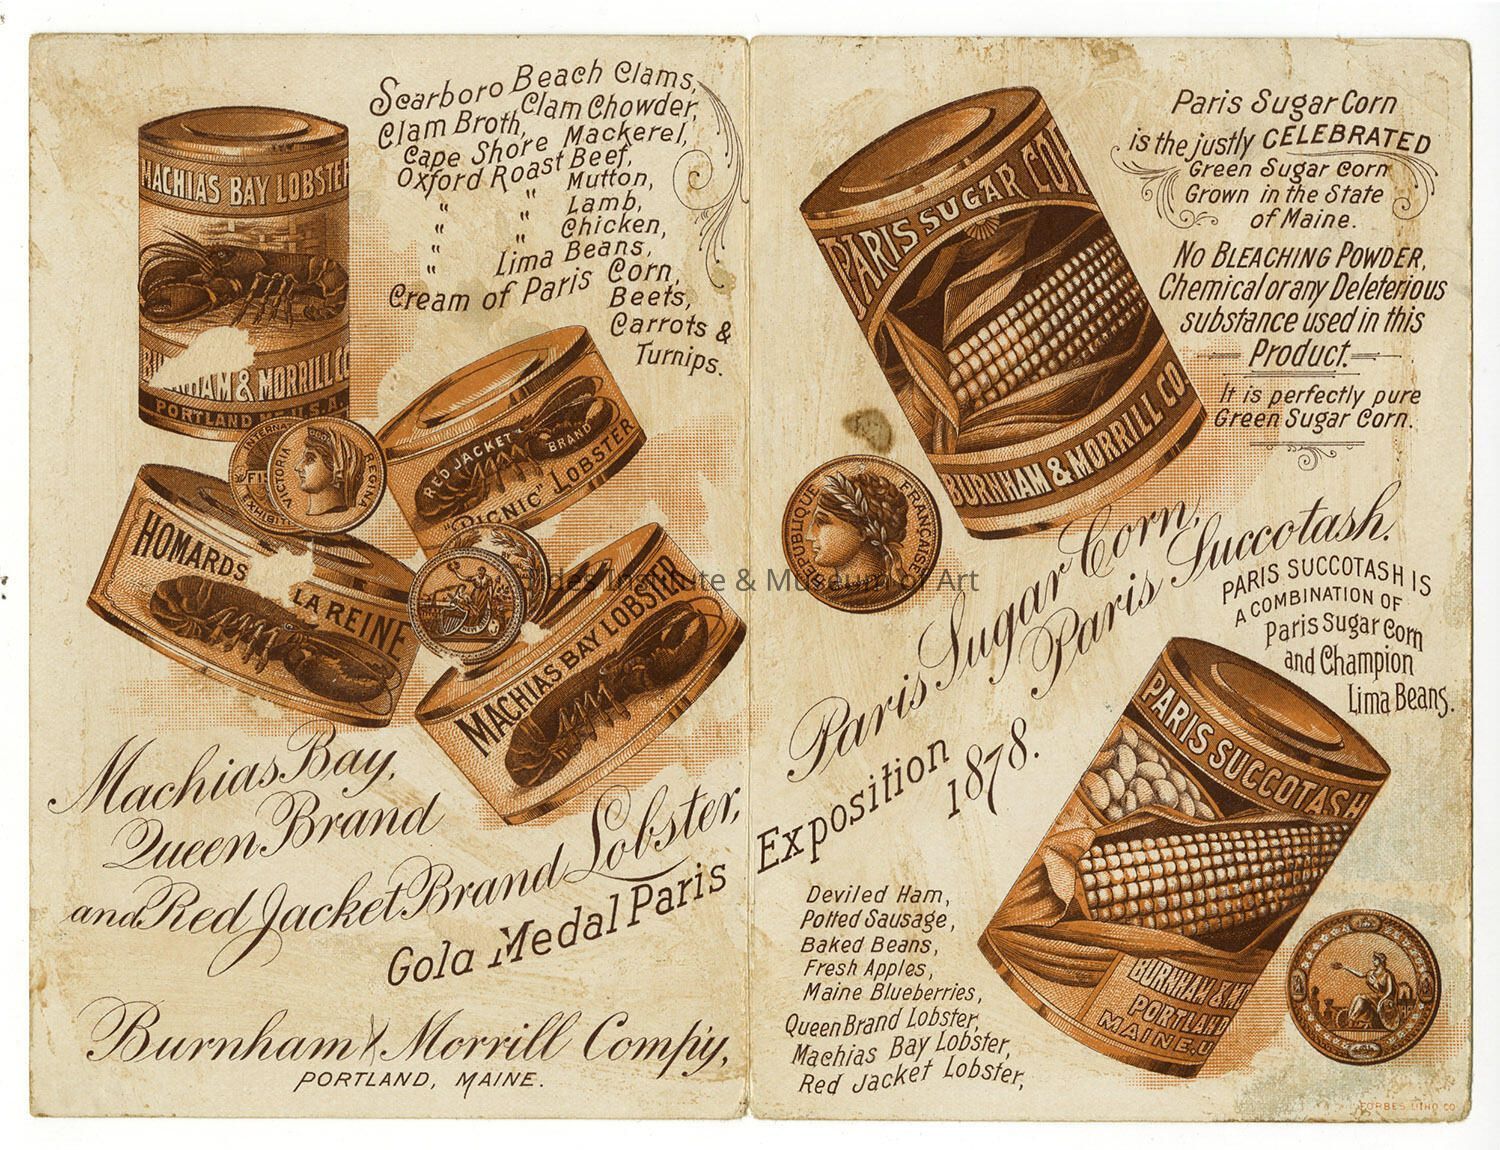 Scarboro Beach Clams,
Clam Broth, Clam Chowder,
Cape Shore Mackerel,
Oxford Roast Beef,
" " Mutton,
" " Lamb,
" " Chicken,
" Lima Beans,
Cream of Paris Corn,
Beets,
Carrots &
Turnips.
MACHIAS BAY LOBSTER
BURNHAM & MORRILL CO
PORTLAND ME. U.S.A.
INTERNAT
FIS
EXHIBIT
VICTORIA REGINA
RED JACKET BRAND
"PICNIC" LOBSTER
HOMARDS
LA REINE
MACHIAS BAY LOBSTER
Machias Bay,
Queen Brand
and Red Jacket Brand Lobster,
Gold Medal Paris Exposition 1878.
Burnham & Morrill Comp'y,
PORTLAND, MAINE.
PARIS SUGAR COR
BURNHAM & MORRILL CO.
Paris Sugar Corn
is the justly CELEBRATED
Green Sugar Corn
Grown in the State
of Maine.
No BLEACHING POWDER,
Chemical or any Deleterious
substance used in this
Product.
It is perfectly pure
Green Sugar Corn.
REPUBLIQUE FRANCAISE
Paris Sugar Corn,
Paris Succotash.
PARIS SUCCOTASH IS
A COMBINATION OF
Paris Sugar Corn
and Champion
Lima Beans.
PARIS SUCCOTASH
BURNHAM & M
PORTLAND
MAINE. U
Deviled Ham,
Potted Sausage,
Baked Beans,
Fresh Apples,
Maine Blueberries,
Queen Brand Lobster,
Machias Bay Lobster,
Red Jacket Lobster,
FORBES LITHO CO
Tides Institute & Museum of Art